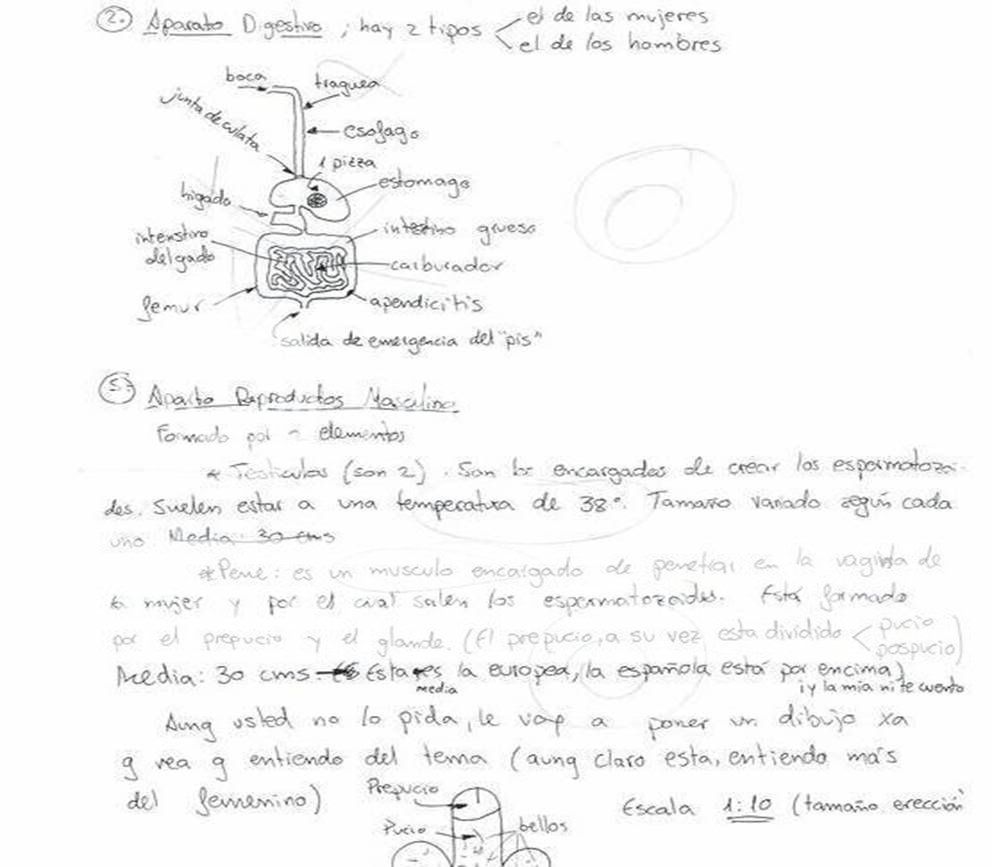 2. Aparato Digestivo ; hay 2 tipos < el de las mujeres
el de los hombres
boca
traguea
junta de culata
esofago
1 pizza
estomago
higado
intestino grueso
intenstino
delgado
carburador
femur
apendicitis
salida de emergencia del "pis"
5. Aparto Reproductos Masculino
Formado por 2 elementos
* Testiculos (son 2). Son los encargados de crear los espermatozoi-
des. Suelen estar a una temperatura de 38º. Tamaño variado según cada
uno. Media: 30 cms
* Pene: es un musculo encargado de penetrar en la vagina de
la mujer y por el cual salen los espermatozoides. Está formado
por el prepucio y el glande. (El prepucio, a su vez esta dividido < pucio
pospucio)
Media: 30 cms (Esta es la europea, la española está por encima)
media
¡y la mia ni te cuento
Aunq usted no lo pida, le voy a poner un dibujo xa
q vea q entiendo del tema (aunq claro esta, entiendo más
del femenino)
Prepucio
Escala 1:10 (tamaño erección
Pucio
bellos